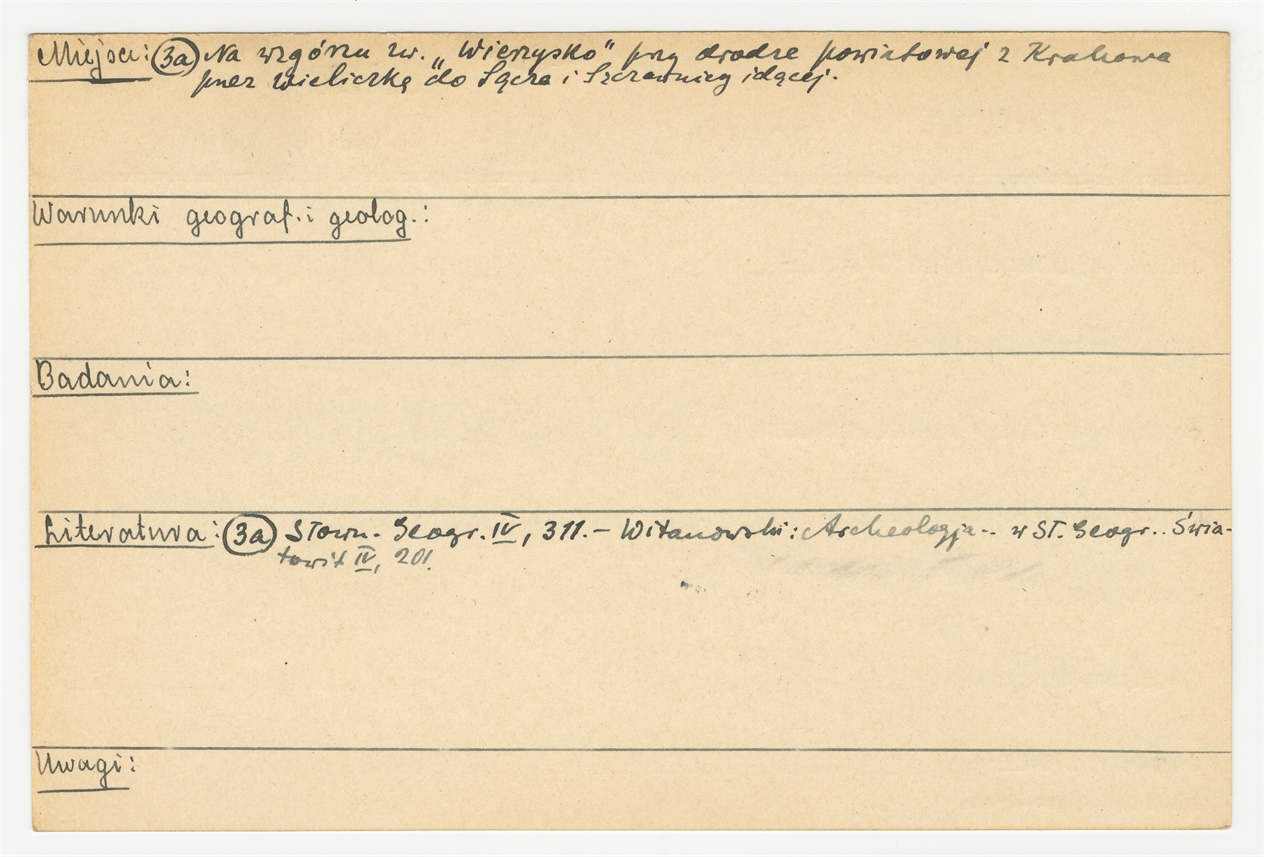 Miejsce: (3a) Na wzgórzu zw. „Wierzysko" przy drodze powiatowej z Krakowa
przez Wieliczkę do Sącza i Szczawnicy idącej.
Warunki geograf. i geolog.:
Badania:
Literatura: (3a) Słown. Geogr. IV, 311. – Witanowski: Archeologja.. w Sł. Geogr.. Świa-
towit IV, 201.
Uwagi: